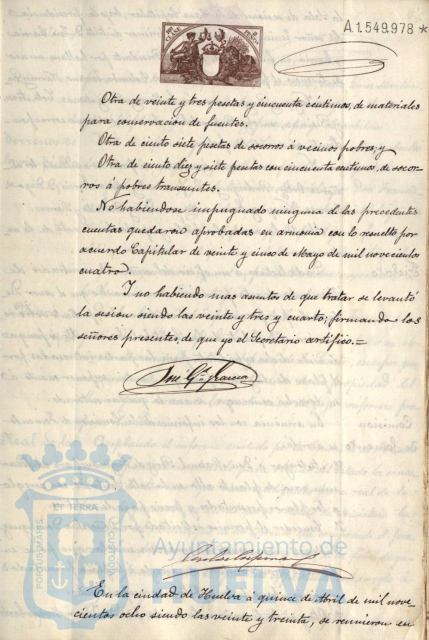 A.1.549.978 *
Otra de veinte y tres pesetas y cincuenta céntimos, de materiales
para conservacion de fuentes.
Otra de ciento siete pesetas de socorros á vecinos pobres, y
Otra de ciento diez y siete pesetas con cincuenta centimos, de socor-
ros á pobres transeuntes.
No habiendose impugnado ninguna de las precedentes
cuentas quedaron aprobadas en armonia con lo resuelto por
acuerdo Capitular de veinte y cinco de Mayo de mil novecientos
cuatro.
I no habiendo mas asuntos de que tratar se levantó
la sesion siendo las veinte y tres y cuarto; firmando los
señores presentes, de que yo el Secretario certifico.=
José Gª
ET TERRA
PORTUS MARIS
CUSTODIA
Ayuntamiento de
HUELVA
En la ciudad de Huelva á quince de Abril de mil nove-
cientos ocho siendo las veinte y treinta, se reunieron en